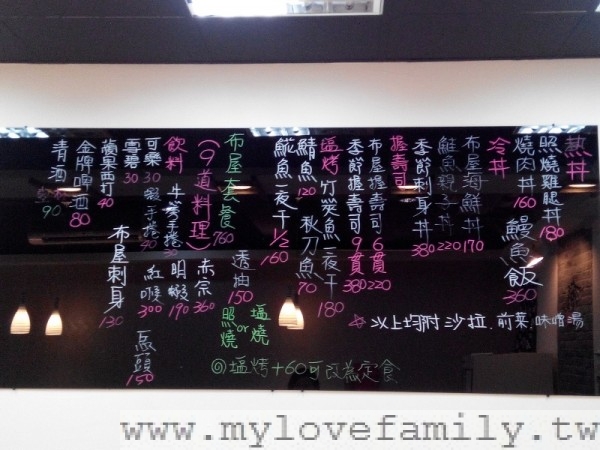 熱丼
照燒雞腿丼 180
燒肉丼 160
鰻魚飯 360
冷丼
布屋海鮮丼 170
鮭魚親子丼 220
季節刺身丼 380
握壽司
布屋握壽司 6貫 220
季節握壽司 9貫 380
☆以上均附沙拉.前菜.味噌湯
塩烤
竹筴魚一夜干 180
鯖魚 120
秋刀魚 70
䱛魚一夜干 1/2 160
布屋套餐
(9道料理) 760
透抽 150
赤宗 360
明蝦 190
紅喉 300
馬頭 150
塩燒
or
照燒
◎塩烤+60可改為定食
飲料
牛蒡手捲 30
可樂 30
蝦手捲 40
雪碧 30
蘋果西打 40
布屋刺身 130
金牌啤酒 80
清酒 90
www.mylovefamily.tw